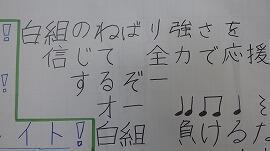 ! 白組のねばり強さを
信じて 全力で応援
! するぞー
オー ♫♫♩
イト! 白組 負けるな